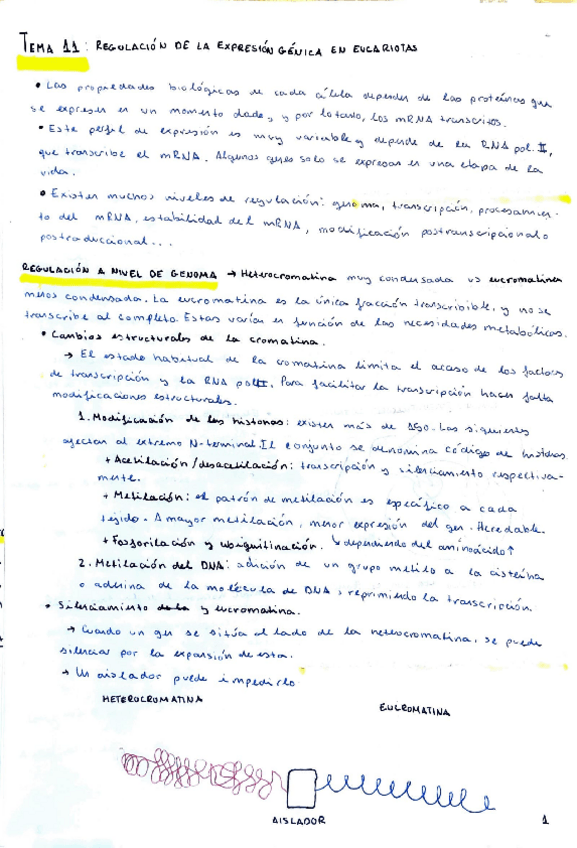 TEMA 11: REGULACIÓN DE LA EXPRESIÓN GÉNICA EN EUCARIOTAS
• Las propiedades biológicas de cada célula dependen de las proteínas que
se expresen en un momento dado, y por lo tanto, los mRNA transcritos.
• Este perfil de expresión es muy variable y depende de la RNA pol. II,
que transcribe el mRNA. Algunos genes solo se expresan en una etapa de la
vida.
• Existen muchos niveles de regulación: genoma, transcripción, procesamien-
to del mRNA, estabilidad del mRNA, modificación postranscripcional o
postraduccional...
REGULACIÓN A NIVEL DE GENOMA → Heterocromatina muy condensada vs eucromatina
menos condensada. La eucromatina es la única fracción transcribible, y no se
transcribe al completo. Estas varían en función de las necesidades metabólicas.
• Cambios estructurales de la cromatina.
→ El estado habitual de la cromatina limita el acceso de los factores
de transcripción y la RNA pol II. Para facilitar la transcripción hacen falta
modificaciones estructurales.
1. Modificación de las histonas: existen más de 150. Las siguientes
afectan al extremo N-terminal. El conjunto se denomina código de histonas.
+ Acetilación/desacetilación: transcripción y silenciamiento respectiva-
mente.
+ Metilación: el patrón de metilación es específico a cada
tejido. A mayor metilación, menor expresión del gen. Heredable.
+ Fosforilación y ubiquitinación. ↳ dependiendo del aminoácido ↑
2. Metilación del DNA: adición de un grupo metilo a la cisteína
o adenina de la molécula de DNA, reprimiendo la transcripción.
• Silenciamiento y eucromatina.
→ Cuando un gen se sitúa al lado de la heterocromatina, se puede
silenciar por la expansión de esta.
→ Un aislador puede impedirlo.
HETEROCROMATINA EUCROMATINA
AISLADOR
1